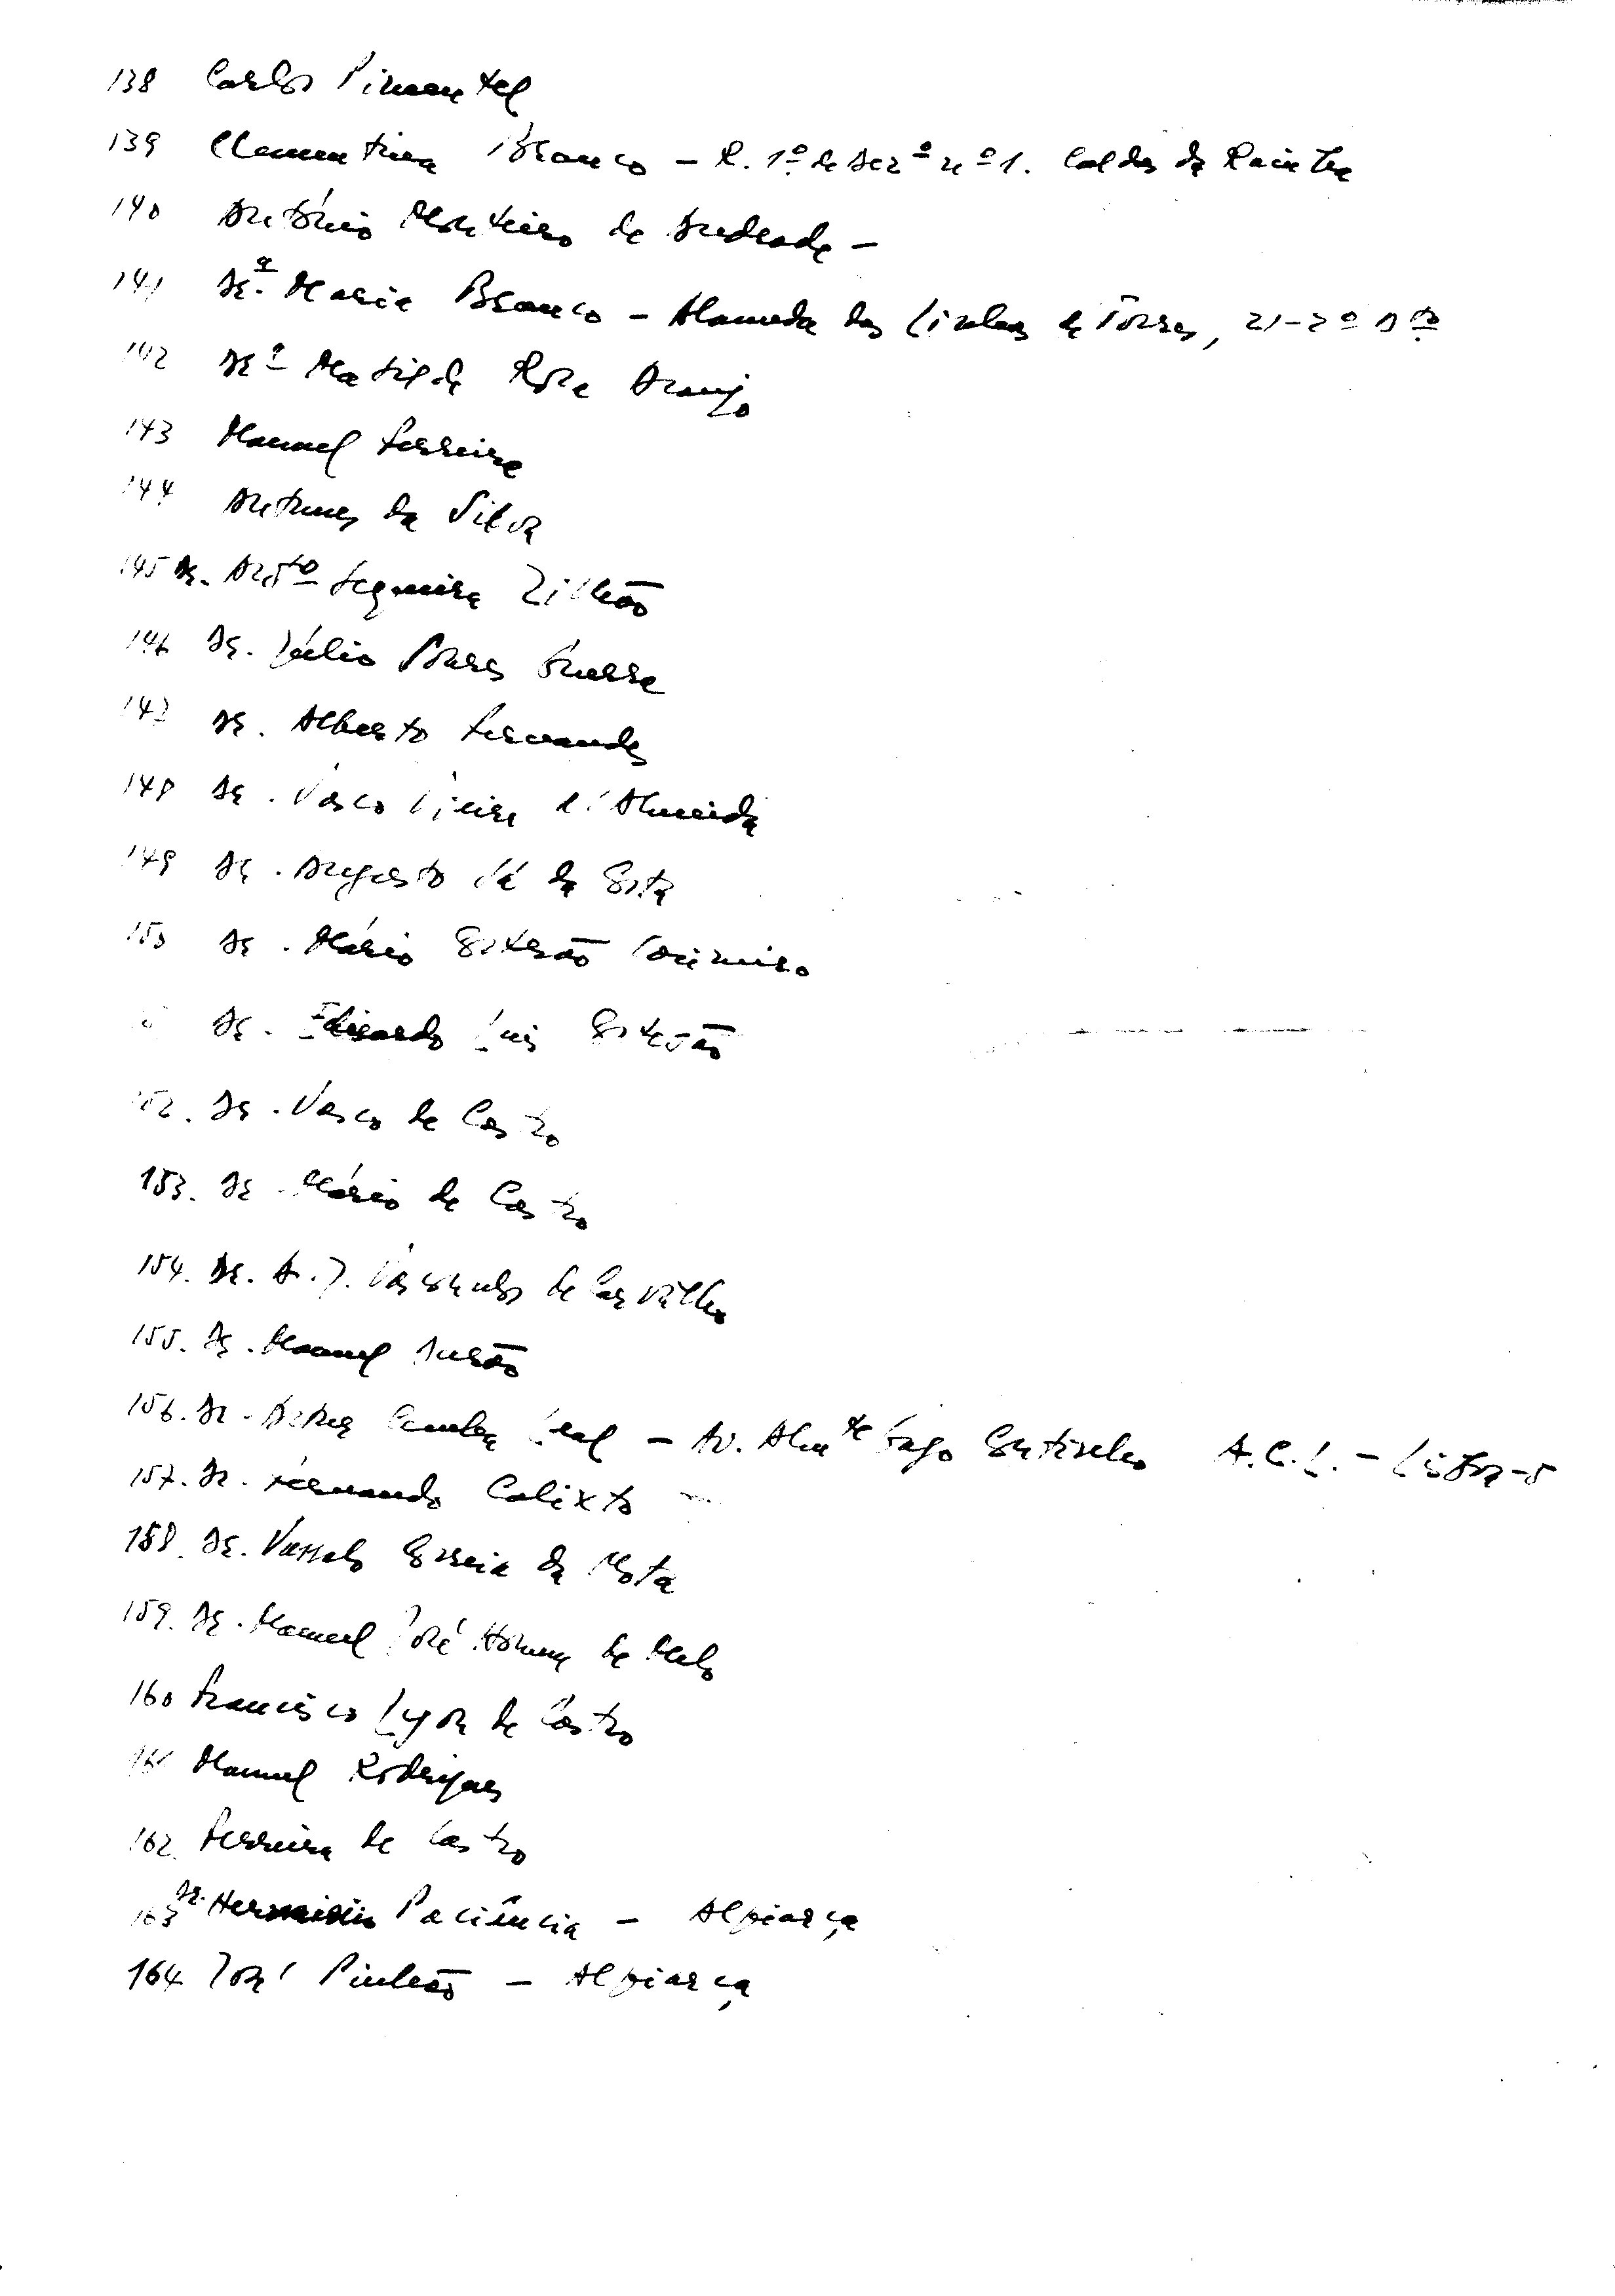 138 Carlos Pimentel
139 Clementina Branco - R. 1º de Dezº nº 1. Caldas da Rainha
140 António Monteiro de Andrade -
141 Drª Maria Branco - Alameda das Linhas de Torres, 21-2º Dto
142 Drª Matilde Rosa Araujo
143 Manuel Ferreira
144 Antunes da Silva
145 Dr. Antº Sequeira Zilhão
146 Dr. Júlio Guerra
147 Dr. Alberto Fernandes
148 Dr. Vasco Vieira d'Almeida
149 Dr. Augusto Sá da Costa
150 Dr. Mário Casimiro
Dr. Eduardo Luis
152. Dr. Vasco de Castro
153. Dr. Mário de Castro
154. Dr. A. J. Vasconcelos de Carvalho
155. Dr. Manuel Durão
156. Dr. Artur Cunha Leal - Av. Almte Gago Coutinho A.C.L. - Lisboa-5
157. Dr. Fernando Calixto -
158. Dr. Vassalo Correia da Mota
159. Dr. Manuel José Homem de Melo
160 Francisco Lyon de Castro
161 Manuel Rodrigues
162. Ferreira de Castro
163 Dr. Hermínio Paciência - Alpiarça
164 José Pinhão - Alpiarça